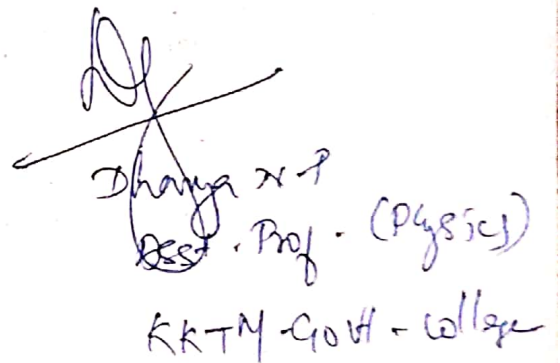 Dhanya N P
Asst. Prof. (Physics)
KKTM Govt. College